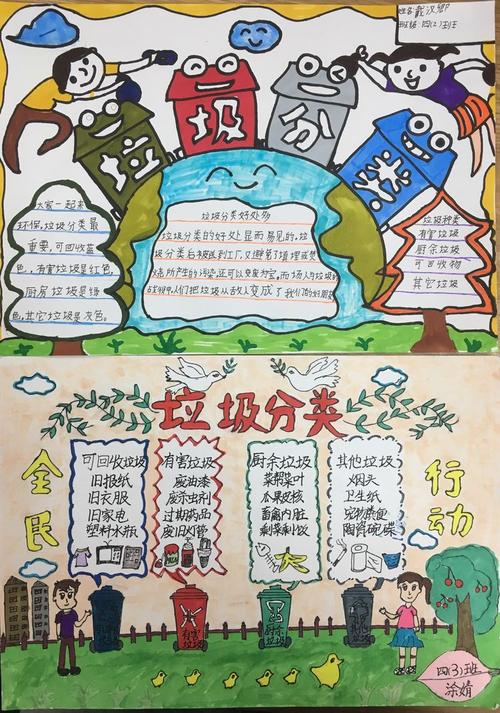 班级:四(2)班
垃 圾 分 类
大家一起来
环保,垃圾分类最
重要,可回收蓝
色,有害垃圾是红色,
厨房垃圾是绿
色,其它垃圾是灰色。
垃圾分类好处多
垃圾分类的好处显而易见的。垃
圾分类后被送到工厂,又避免了填埋或焚
烧所产生的污染,还可以变废为宝,而场人与垃圾的
战役中,人们把垃圾从敌人变成了我们的好朋友
垃圾种类
有害垃圾
厨余垃圾
可回收物
其它垃圾
垃圾分类
全民
行动
可回收垃圾
旧报纸
旧衣服
旧家电
塑料水瓶
有害垃圾
废油漆
废杀虫剂
过期药品
废旧灯管
厨余垃圾
菜帮菜叶
瓜果皮核
畜禽内脏
剩菜剩饭
其他垃圾
烟头
卫生纸
宠物粪便
陶瓷碗碟
有害
垃圾
厨余
垃圾
四(3)班
涂婧